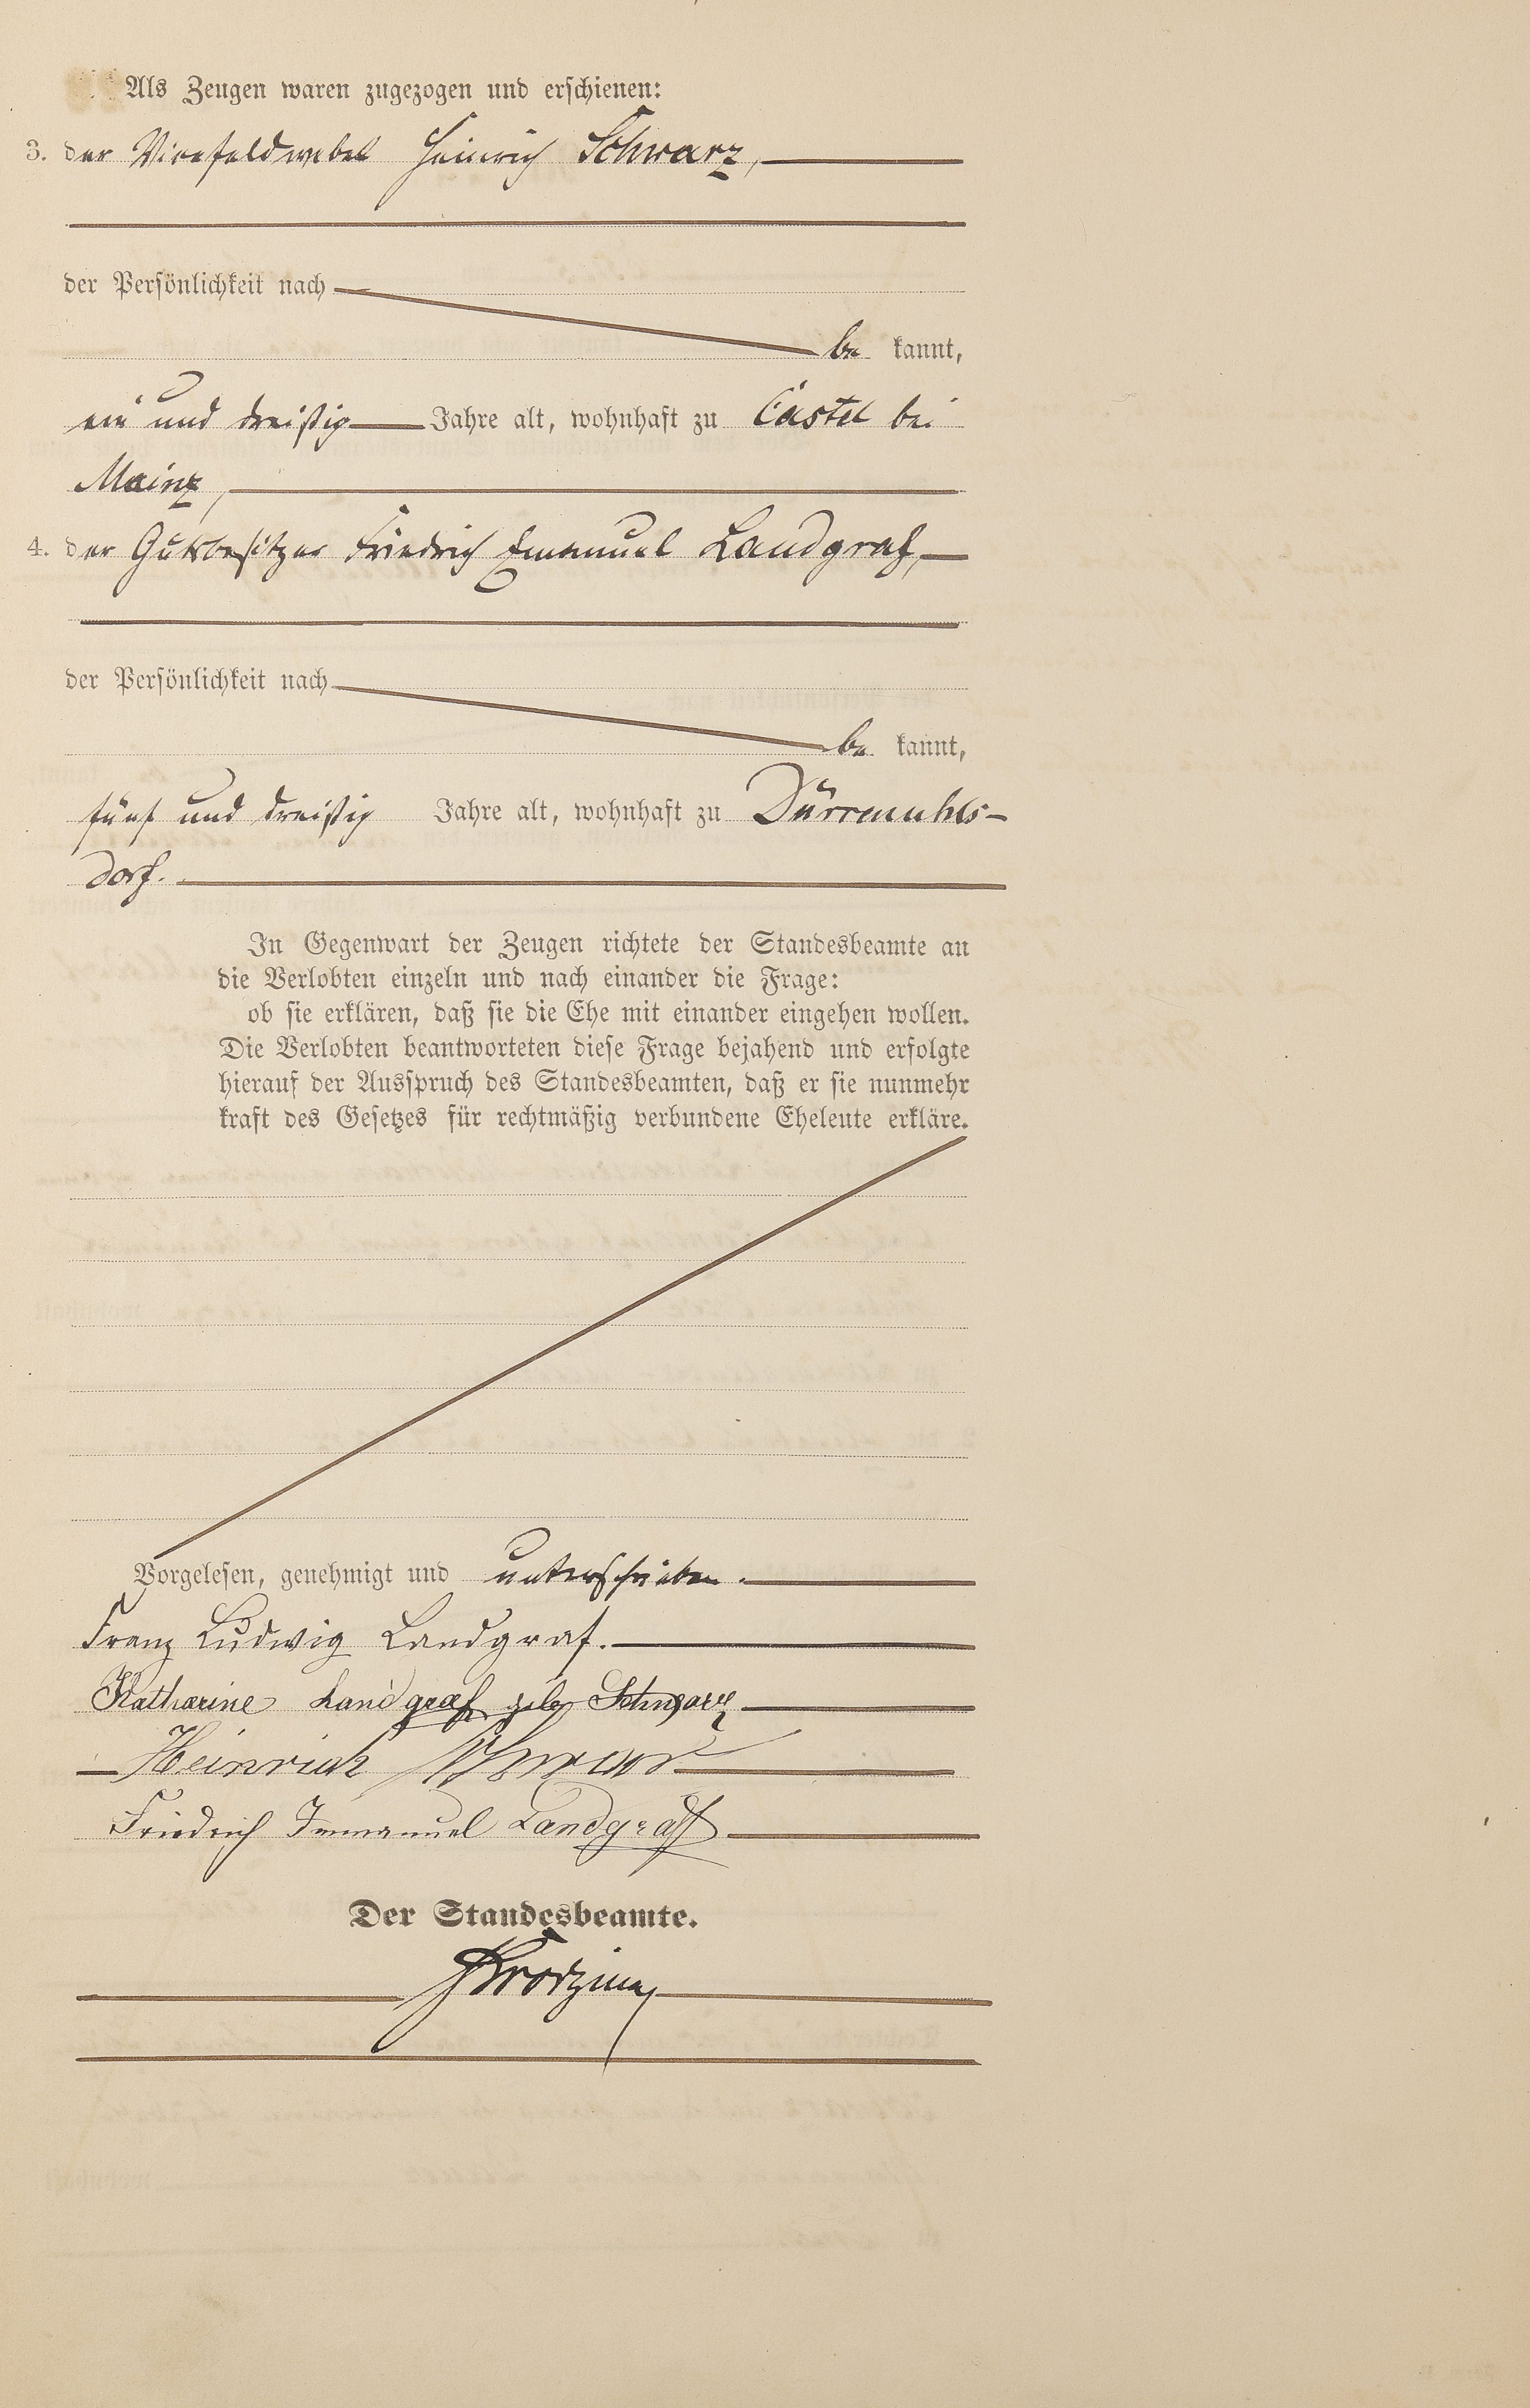 Als Zeugen waren zugezogen und erschienen:
3. der Vicefeldwebel Heinrich Schwarz,
der Persönlichkeit nach
be kannt,
ein und dreißig Jahre alt, wohnhaft zu Castel bei
Mainz,
4. der Gutsbesitzer Friedrich Emanuel Landgraf,
der Persönlichkeit nach
be kannt,
fünf und dreißig Jahre alt, wohnhaft zu Dürrenuhls-
dorf.
In Gegenwart der Zeugen richtete der Standesbeamte an
die Verlobten einzeln und nach einander die Frage:
ob sie erklären, daß sie die Ehe mit einander eingehen wollen.
Die Verlobten beantworteten diese Frage bejahend und erfolgte
hierauf der Ausspruch des Standesbeamten, daß er sie nunmehr
kraft des Gesetzes für rechtmäßig verbundene Eheleute erkläre.
Vorgelesen, genehmigt und unterschrieben.
Franz Ludwig Landgraf.
Katharine Landgraf geb Schwarz
Heinrich Schwarz
Friedrich Immanuel Landgraf
Der Standesbeamte.